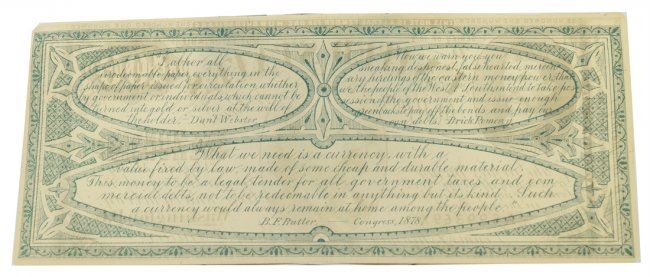 "I abhor all
irredeemable paper, everything in the
shape of paper issued for circulation, whether
by government or individuals, which cannot be
turned into gold or silver at the will of
the holder." Danl Webster.
Now we warn you, you
sneaking, dishonest, false hearted, mercen-
ary hirelings of the eastern money power, that
we, the people of the West & South, intend to take pos-
session of the government and issue enough
greenbacks to pay off the bonds and pay
our debts" Brick Pomeroy
"What we need is a currency, with a
value fixed by law, made of some cheap and durable material.
This money to be a legal tender for all government taxes and com
mercial debts, not to be redeemable in anything but its kind. Such
a currency would always remain at home among the people."
B. F. Butler — Congress, 1878.